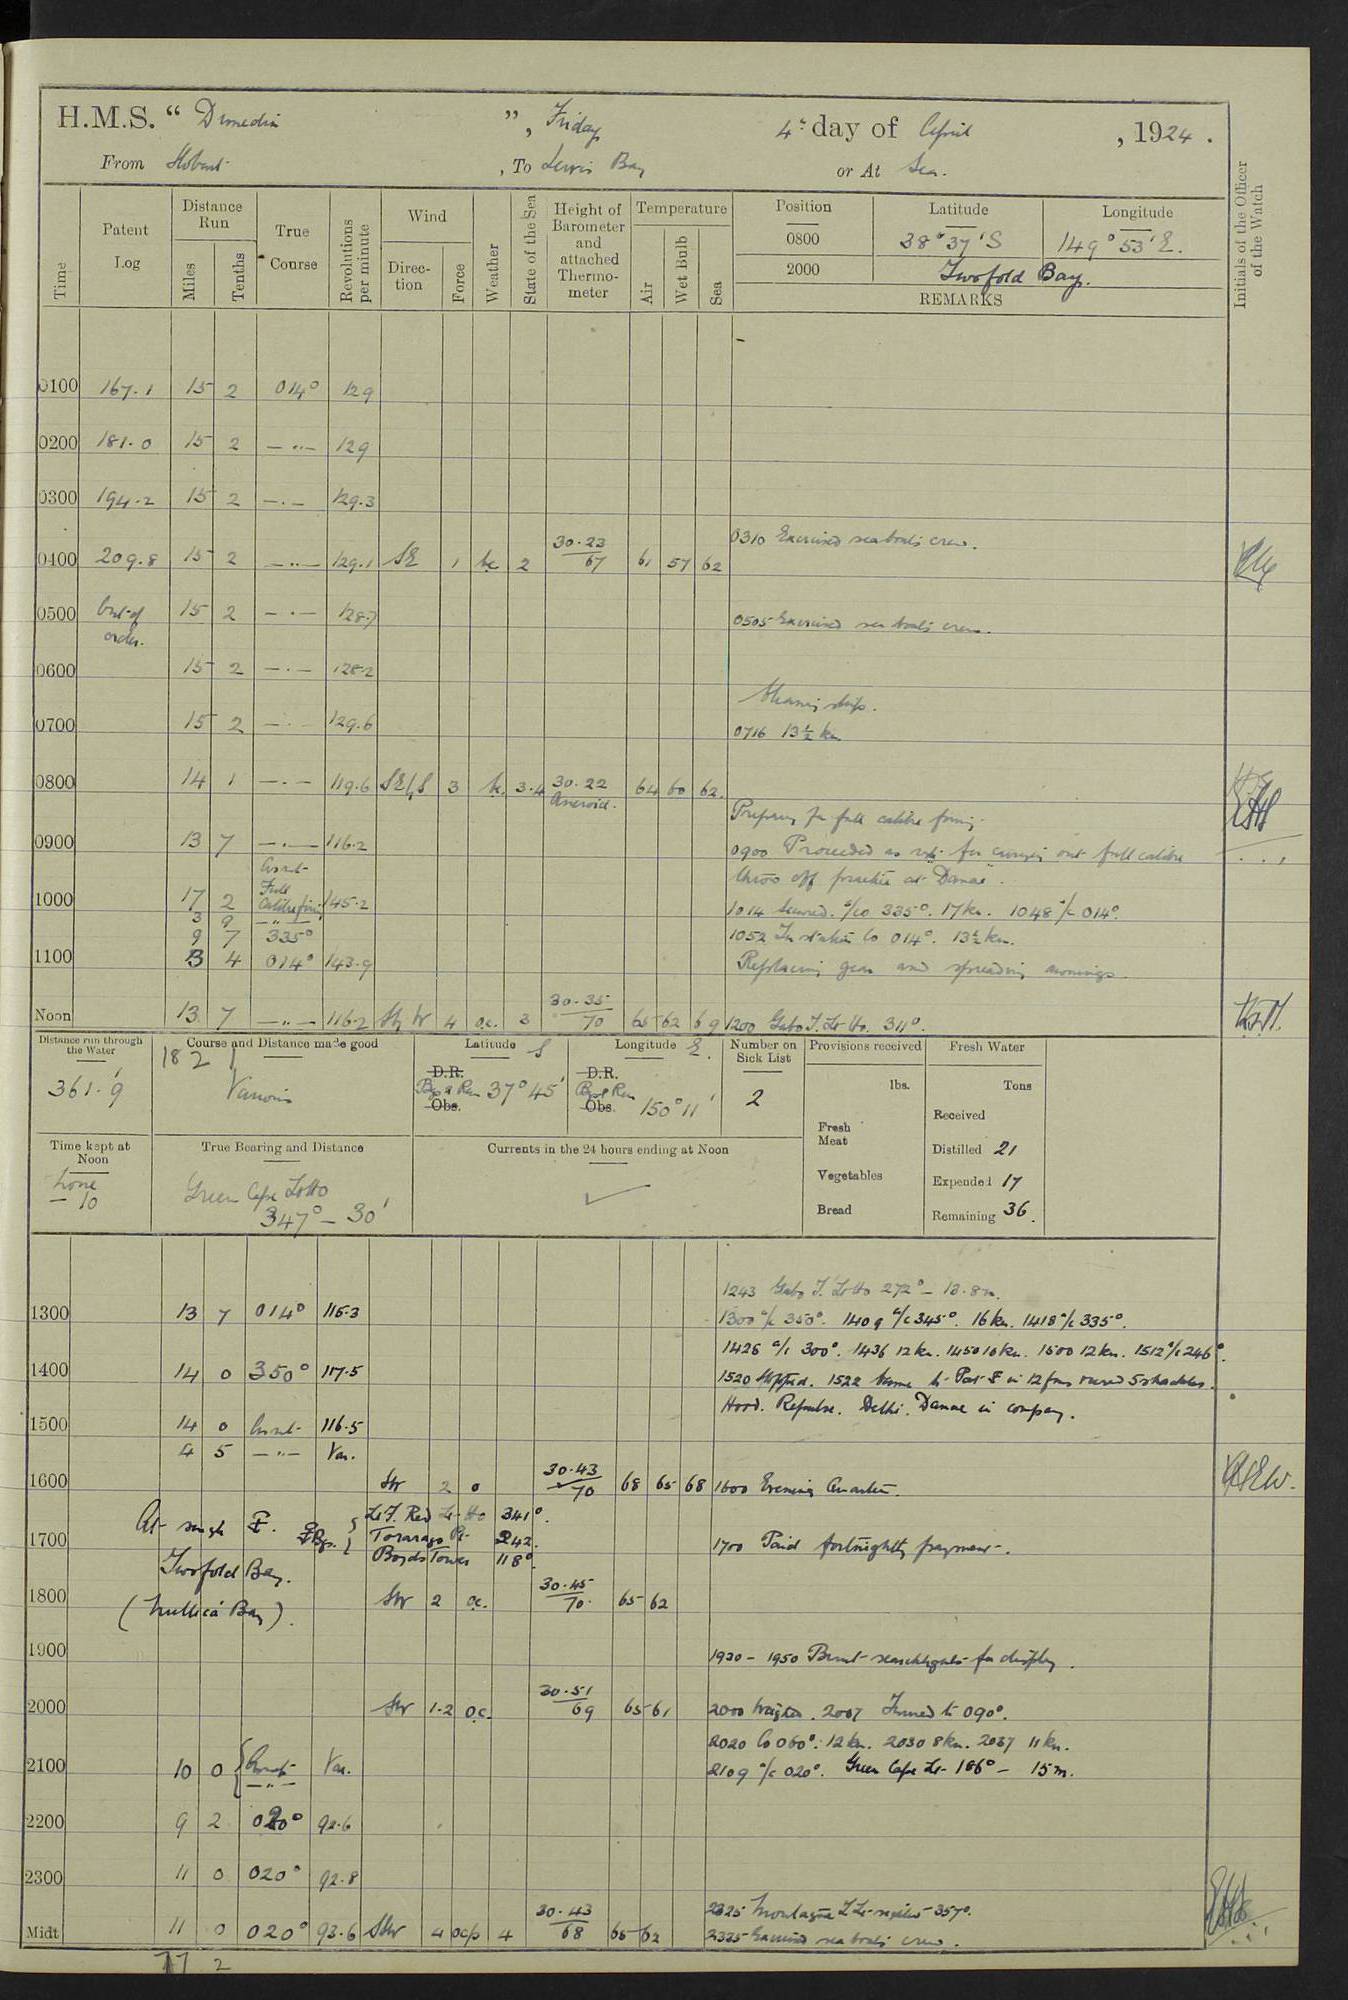 H.M.S. “ Dunedin ”, Friday 4th day of April, 1924.
From Hobart, To Lewis Bay or At Sea.
Time
Patent Log
Distance Run
Miles
Tenths
True Course
Revolutions per minute
Wind
Direction
Force
Weather
State of the Sea
Height of Barometer and attached Thermometer
Temperature
Air
Wet Bulb
Sea
Position Latitude Longitude
0800 38° 37' S 149° 53' E.
2000 Twofold Bay.
REMARKS
Initials of the Officer of the Watch
0100 167.1 15 2 014° 129
0200 181.0 15 2 — " — 129
0300 194.2 15 2 — " — 129.3
0310 Exercised seaboats crew.
0400 209.8 15 2 — " — 129.1 SE 1 bc 2 30.23 67 61 57 62
0500 Out of order. 15 2 — " — 128.7
0505 Exercised sea boats crew.
0600 15 2 — " — 128.2
Cleaning ship.
0700 15 2 — " — 129.6
0716 13½ kn
0800 14 1 — " — 119.6 SE/S 3 bc 3.4 30.22 Aneroid. 64 60 62.
Preparing for full calibre firing.
0900 13 7 — " — 116.2
0900 Proceeded as req. for carrying out full calibre
throw off practice at Danae.
1000 17 2 Const. Full Calibre firing 145.2
3 9 — " —
1014 Secured. a/co 335°. 17 kn. 1048 a/c 014°.
9 7 335°
1052 In station Co 014°. 13½ kn.
1100 3 4 014° 143.9
Replacing gear and spreading awnings.
Noon 13 7 — " — 116.2 S by W 4 o.c. 3 30.35 70 65 62 69 1200 Gabo I. Lt Ho. 311°.
Distance run through the Water
361.'9
182
Course and Distance made good
Various
Latitude S
D.R.
Bgs & Run 37° 45'
Obs.
Longitude E.
D.R.
Bgs & Run 150° 11'
Obs.
Number on Sick List
2
Provisions received
lbs.
Fresh Meat
Vegetables
Bread
Fresh Water
Tons
Received
Distilled 21
Expended 17
Remaining 36.
Time kept at Noon
Zone — 10
True Bearing and Distance
Green Cape Lt Ho
347° — 30'
Currents in the 24 hours ending at Noon
1243 Gabo I. Lt Ho 272° — 13.8 m.
1300 13 7 014° 115.3
1300 a/c 350°. 1409 a/c 345°. 16 kn. 1418 a/c 335°.
1426 a/c 300°. 1436 12 kn. 1450 10 kn. 1500 12 kn. 1512 a/c 246°.
1400 14 0 350° 117.5
1520 Stopped. 1522 Came to Port in 12 fms veered 5 shackles.
Hood. Repulse. Delhi. Danae in company.
1500 14 0 Const. 116.5
4 5 — " — Var.
1600 SW 2 o 30.43 70 68 65 68 1600 Evening Quarters.
At single
Bgs. Lt I. Red Lt Ho 341°.
Torarago Pt 242.
Boyds Tower 118°.
1700 1700 Paid fortnightly payment.
Twofold Bay.
(Nullica Bay).
1800 SW 2 o.c. 30.45 70. 65 62
1900
1930 – 1950 Burnt searchlights for display.
2000 SW 1.2 o.c. 30.51 69 65 61 2000 Weighed. 2007 Turned to 090°.
2020 Co 060°. 12 kn. 2030 8 kn. 2037 11 kn.
2100 10 0 Const. — " — Var.
2109 a/c 020°. Green Cape Lt 186° — 15 m.
2200 9 2 020° 92.6
2300 11 0 020° 92.8
2325 Montague I. Lt sighted 357°.
Midt 11 0 020° 93.6 SSW 4 ocp 4 30.43 68 65 62
2325 Exercised sea boats crew.
77 2